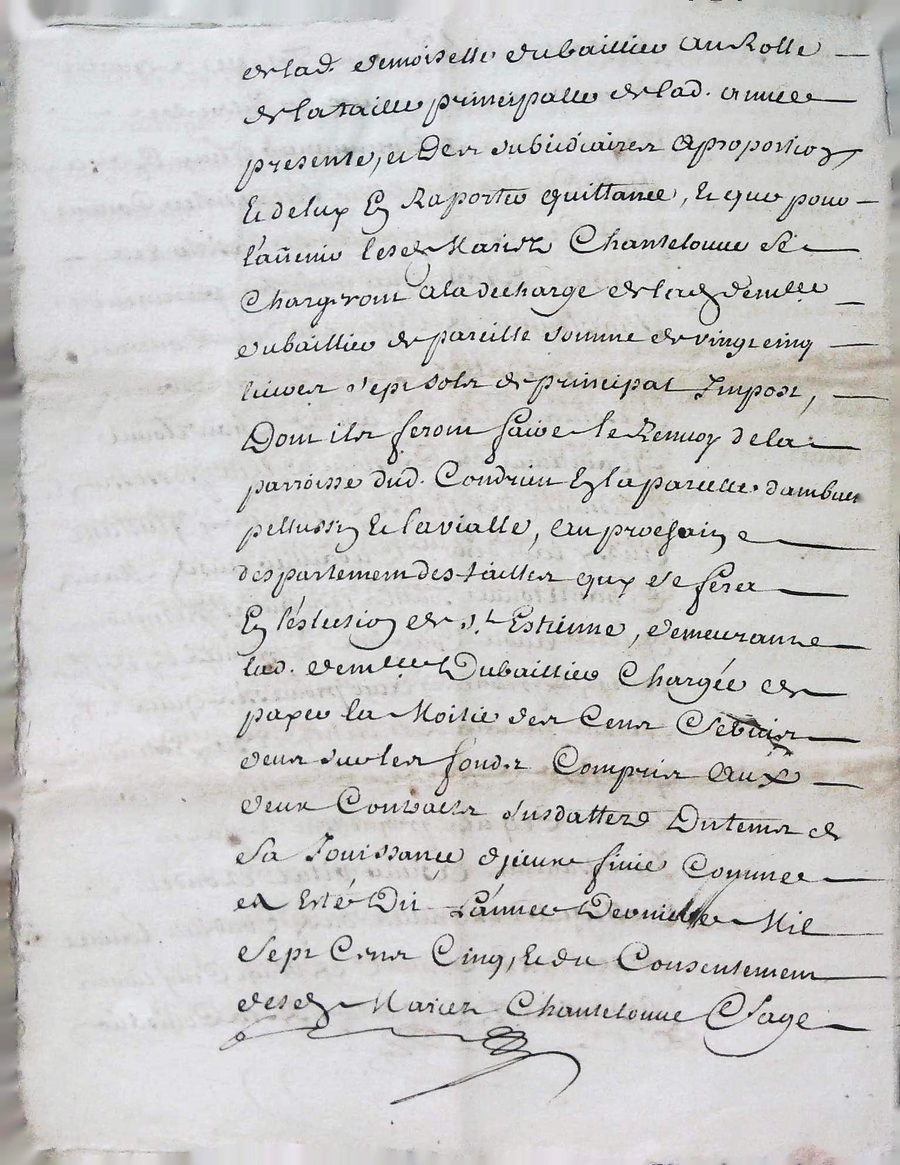 de lad. demoiselle dubaillieu au Rolle
de la taille principalle de lad. année
presente, et Des subsidiaires a proportion
Et de luy En Raporter quittance, Et que pour
l'advenir lesd. Mariez Chantelouve se
Chargeront a la decharge de lad. demlle
dubaillieu de pareille somme de vingt cinq
livres sept sols de principal Impost,
Dont ils feront faire le Renvoy de la
parroisse dud. Condrieu En la parcelle
pellussin Et lavialle, au prochain
despartement des tailles quy se fera
En l'eslection de st. Estienne, demeurante
lad. demlle Dubaillieu Chargée de
payer la Moitié des Cens
deus sur les fonds Compris aux
deux Contracts susdattes Du tems de
sa Jouissance finie Comme
a Esté Dit L'année Derniere Mil
Sept Cens Cinq, Et du Consentement
desd. Mariez Chantelouve